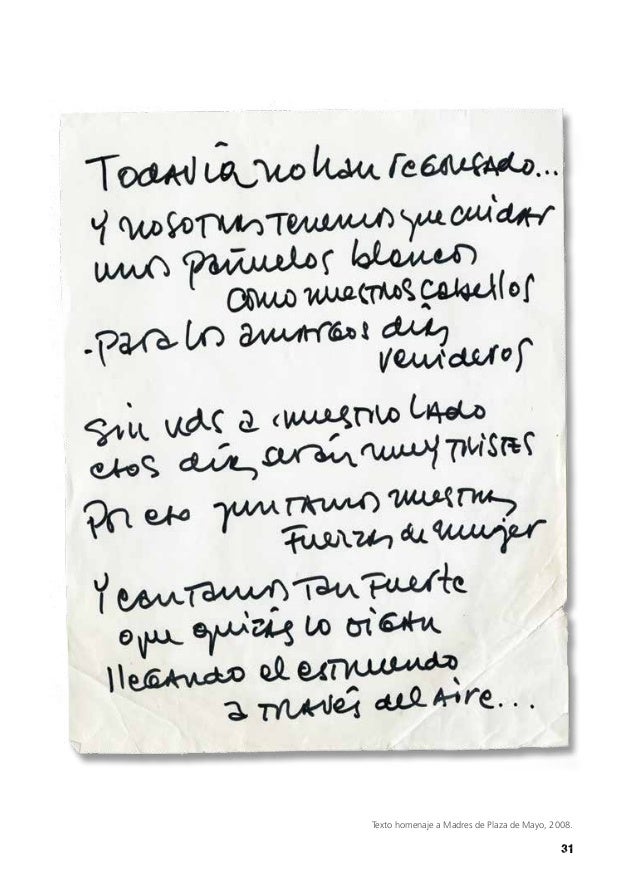 Todavía no han regresado...
y nosotras tenemos que cuidar
unos pañuelos blancos
como nuestros cabellos
-para los amargos días
venideros
Sin uds a nuestro lado
estos días serán muy tristes
Por eso juntamos nuestras
fuerzas de mujer
Y cantamos tan fuerte
que quizás lo oigan
llegando el estruendo
a través del aire...
Texto homenaje a Madres de Plaza de Mayo, 2008.
31